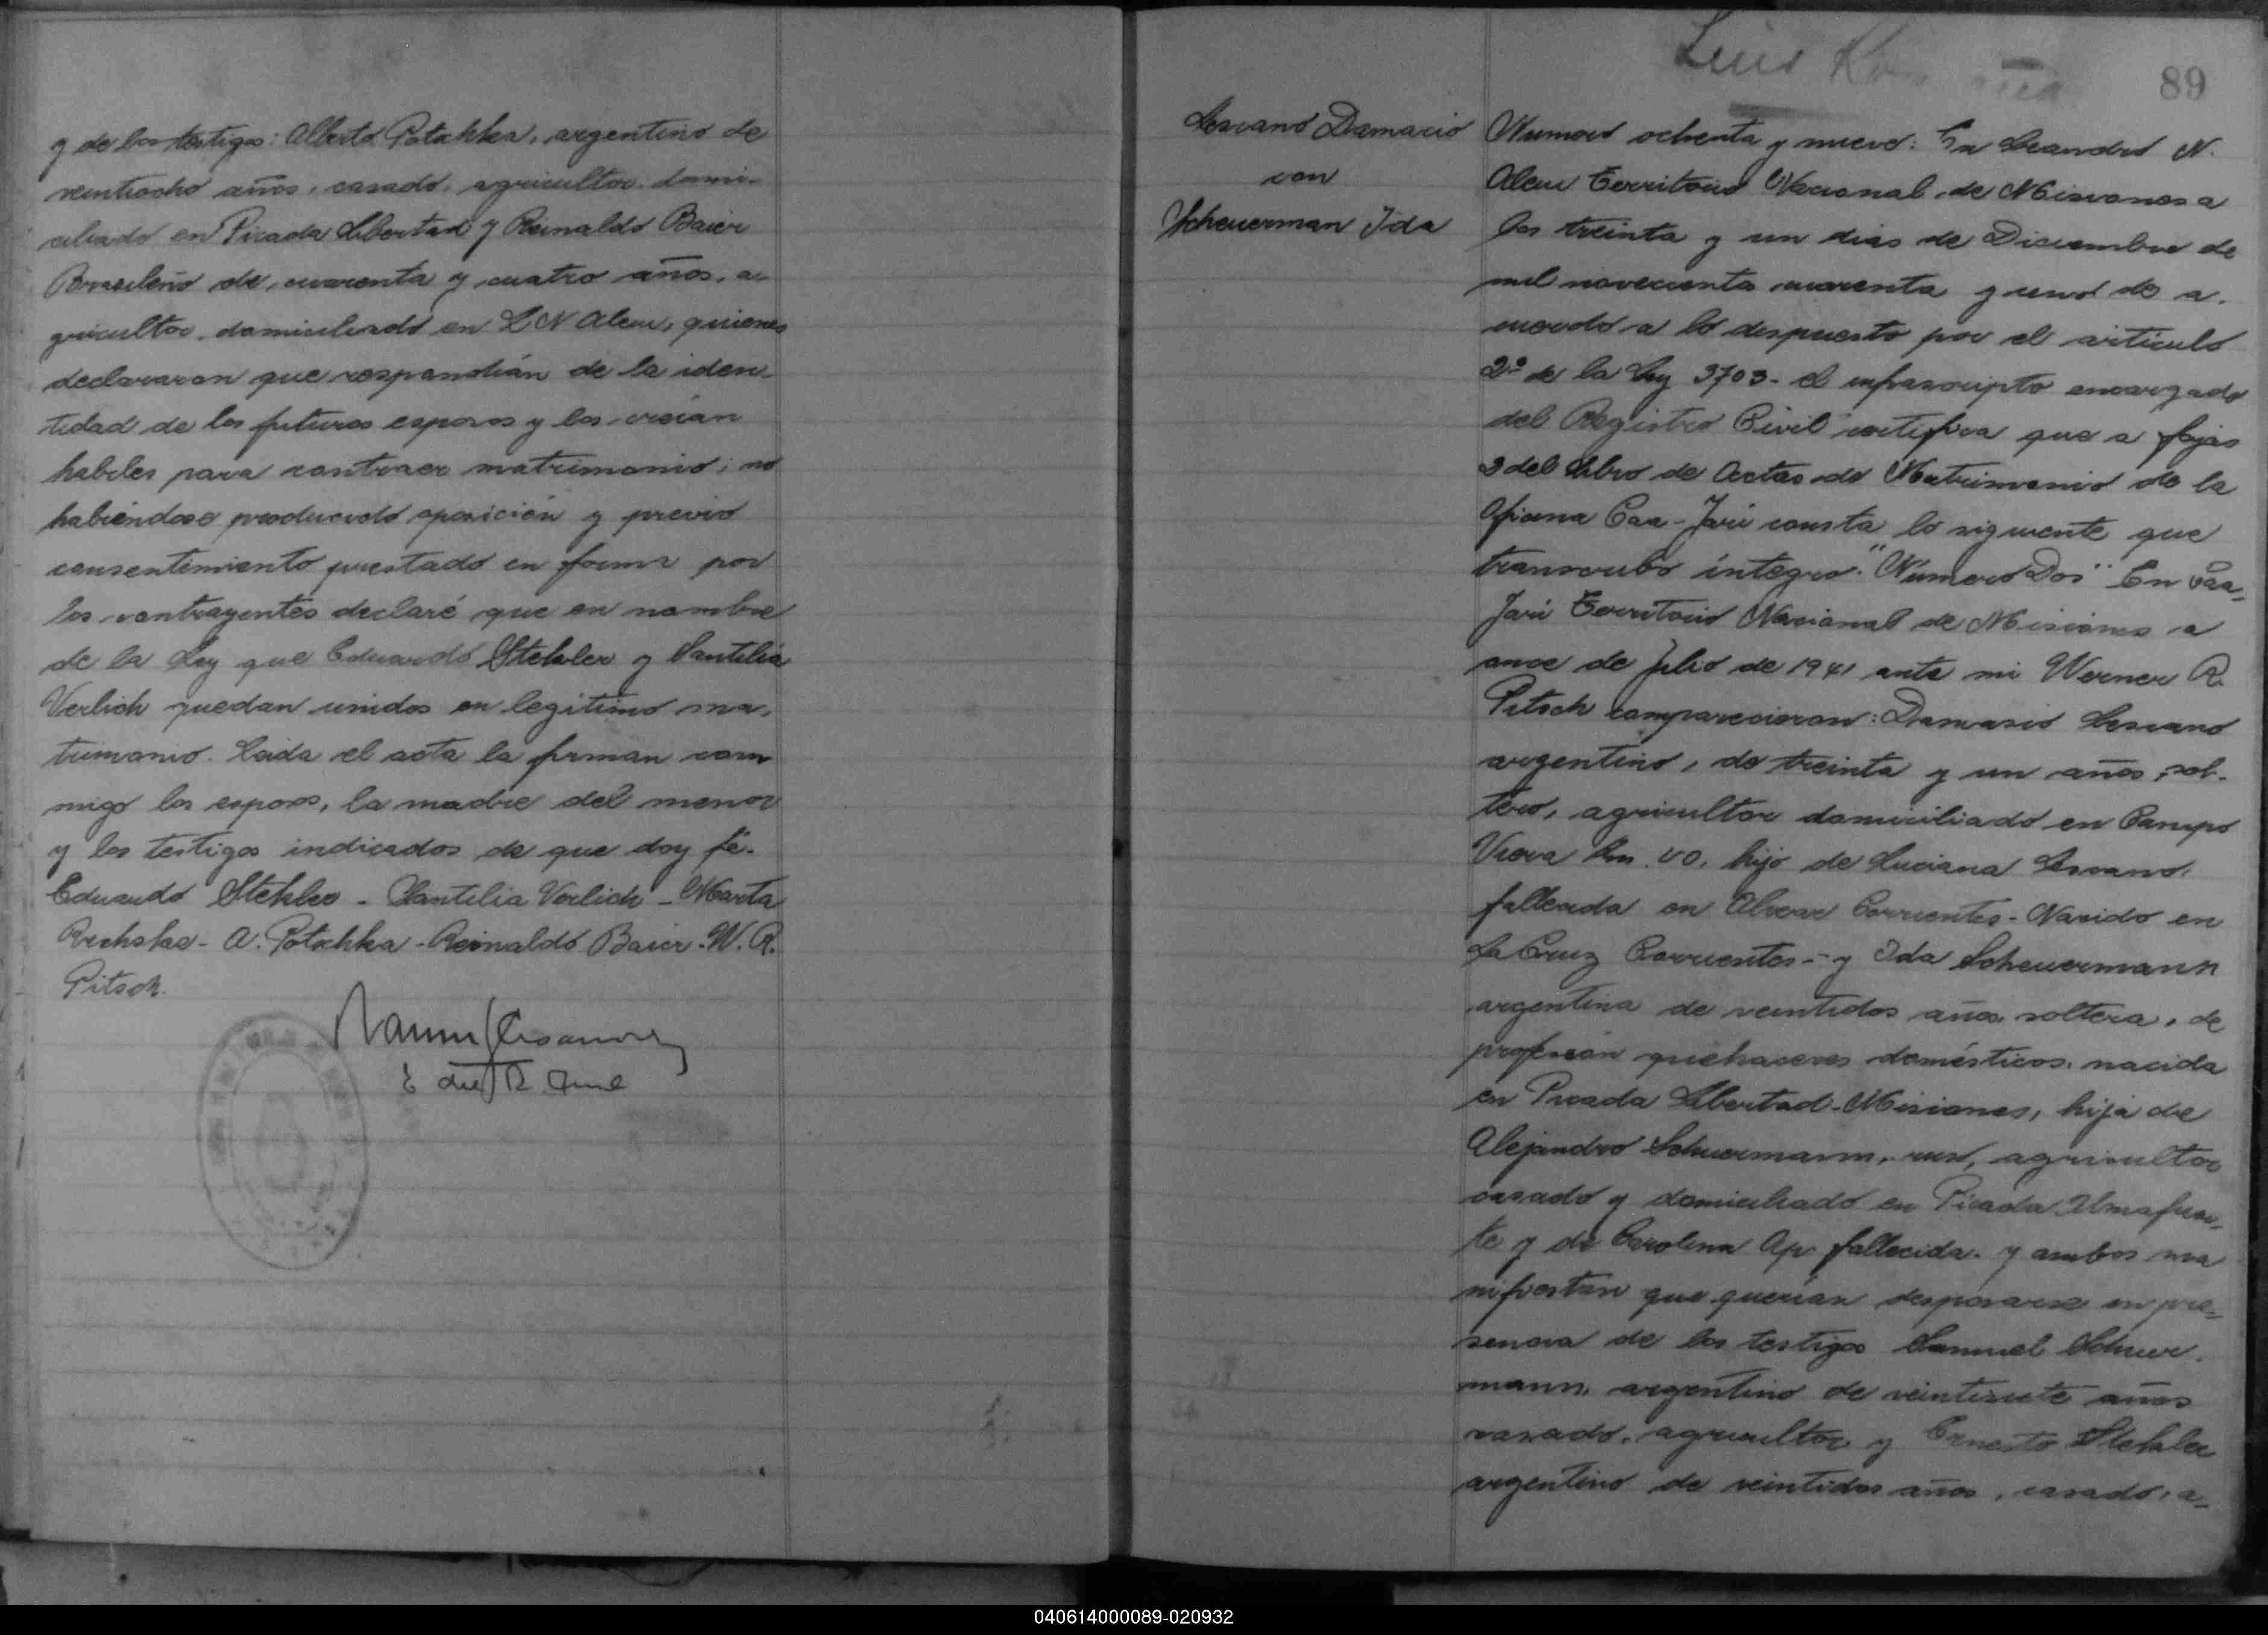 y de los testigos: Alberto Potschka, argentino de
veintiocho años, casado, agricultor, domi-
ciliado en Picada Libertad y Reinaldo Baier
Brasileño de cuarenta y cuatro años, a-
gricultor, domiciliado en L N Alem, quienes
declararon que respondián de la iden-
tidad de los futuros esposos y los creían
habiles para contraer matrimonio; no
habiéndose producido oposición y previo
consentimiento prestado en forma por
los contrayentes declaré que en nombre
de la Ley que Eduardo Stehler y Santilia
Verlich quedan unidos en legitimo ma-
trimonio. Leida el acta la firman con
migo los esposos, la madre del menor
y los testigos indicados de que doy fé.
Eduardo Stehler - Santilia Verlich - Marta
A. Potschka - Reinaldo Baier - W. R.
Pitsch.
Luis
89
Lescano Damacio
con
Scheuerman Ida
Numero ochenta y nueve: En Leandro N.
Alem Territorio Nacional de Misiones a
los treinta y un dias de Diciembre de
mil novecientos cuarenta y uno de a-
cuerdo a lo dispuesto por el articulo
2º de la Ley 3703 - el infrascripto encargado
del Registro Civil certifica que a fojas
2 del Libro de Actas de Matrimonio de la
Oficina Caa-Jari consta lo siguiente que
transcribo íntegro: "Numero Dos" En Caa-
Jari Territorio Nacional de Misiones a
once de Julio de 1941 ante mi Werner R.
Pitsch comparecieron: Damasio Lescano
argentino, de treinta y un años, sol-
tero, agricultor domiciliado en Campo
Viera Km. 40, hijo de Luciana Lescano,
fallecida en Alvear Corrientes - Nacido en
La Cruz Corrientes - y Ida Scheuermann
argentina de veintidos años soltera, de
profesión quehaceres domésticos, nacida
en Picada Libertad - Misiones, hija de
Alejandro Scheuermann, ruso, agricultor
casado y domiciliado en Picada Almafuer-
te y de Carolina Ap fallecida. y ambos ma
nifiestan que querían desposarse en pre-
sencia de los testigos Samuel Scheuer-
mann, argentino de veintisiete años
casado, agricultor y Ernesto Stehler
argentino de veintidos años, casado, a-
040614000089-020932